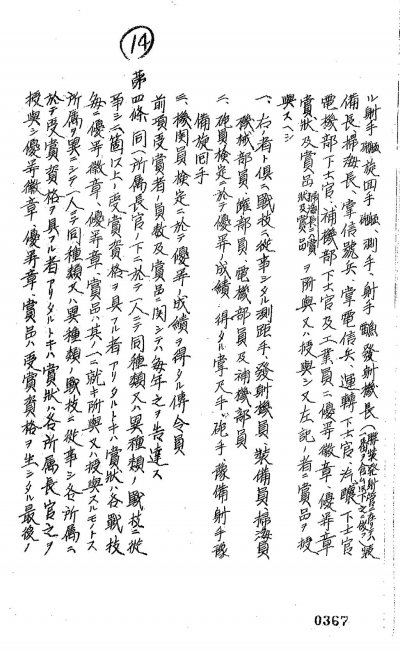 14
ル射手 旋回手 測手、射手 發射機長(聯装發射管ニ在リテハ
備長掃海長、掌信號兵、掌電信兵、運轉下士官、汽醸下士官
電機部下士官、補機部下士官及工業員ニ優等徽章、優等章
賞狀及賞品(掃海長ニハ賞狀及賞品)ヲ附與又ハ授與シ又左記ノ者ニ賞品ヲ授
與スヘシ
一、右ノ者ト倶ニ戰技ニ從事シタル測距手、發射機員、裝備員、掃海員
機械部員、罐部員、電機部員及補機部員
二、砲員檢定ニ於テ優等ノ成績ヲ得タル掌尺手、砲手、豫備射手豫
備旋回手
三、機関員檢定ニ於テ優等ノ成績ヲ得タル傳令員
前項受賞者ノ員數及賞品ニ関シテハ毎年之ヲ告達ス
第四條 同一所属長官ノ下ニ於テ一人ニテ同種類又ハ異種類ノ戰技ニ從
事シ二箇以上ノ受賞資格ヲ具フル者アリタルトキハ賞狀ハ各戰技
毎ニ優等徽章、優等章、賞品ハ其ノ一ニ就キ附與又ハ授與スルモノトス
所属ヲ異ニシテ一人ニテ同種類又ハ異種類ノ戰技ニ從事シ各所属ニ
於テ受賞資格ヲ具フル者アリタルトキハ賞狀ハ各所属長官之ヲ
授與シ優等徽章、優等章、賞品ハ受賞資格ヲ生シタル最後ノ
0367